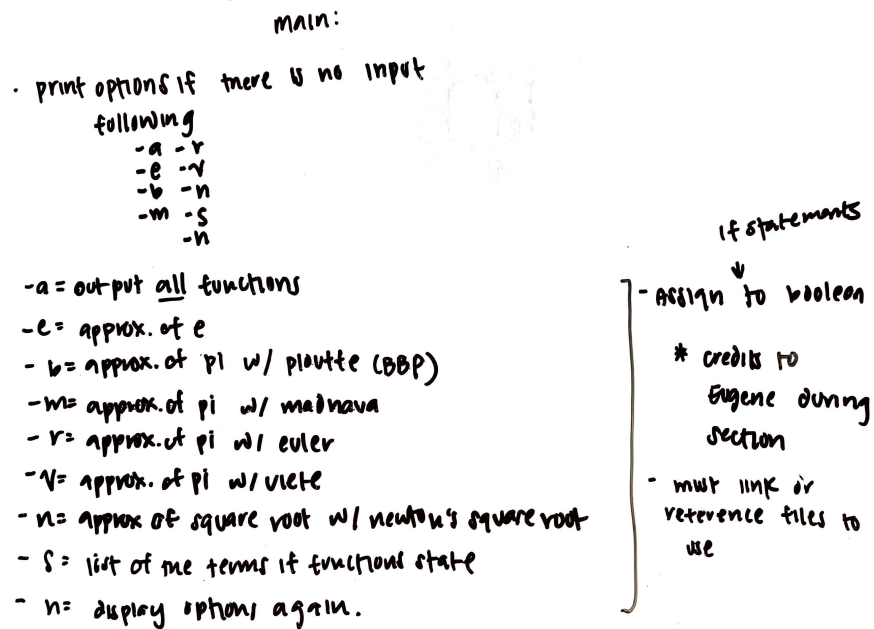 main:
· print options if there is no input
following
-a -r
-e -v
-b -n
-m -s
-h
-a = output all functions
-e = approx. of e
- b = approx. of pi w/ ploutte (BBP)
-m = approx. of pi w/ madhava
- r = approx. of pi w/ euler
-v = approx. of pi w/ viete
- n = approx of square root w/ newton's square root
- s = list of the terms if functions state
- h = display options again.
if statements
↓
- Assign to boolean
* credits to
Eugene during
section
- must link or
reference files to
use